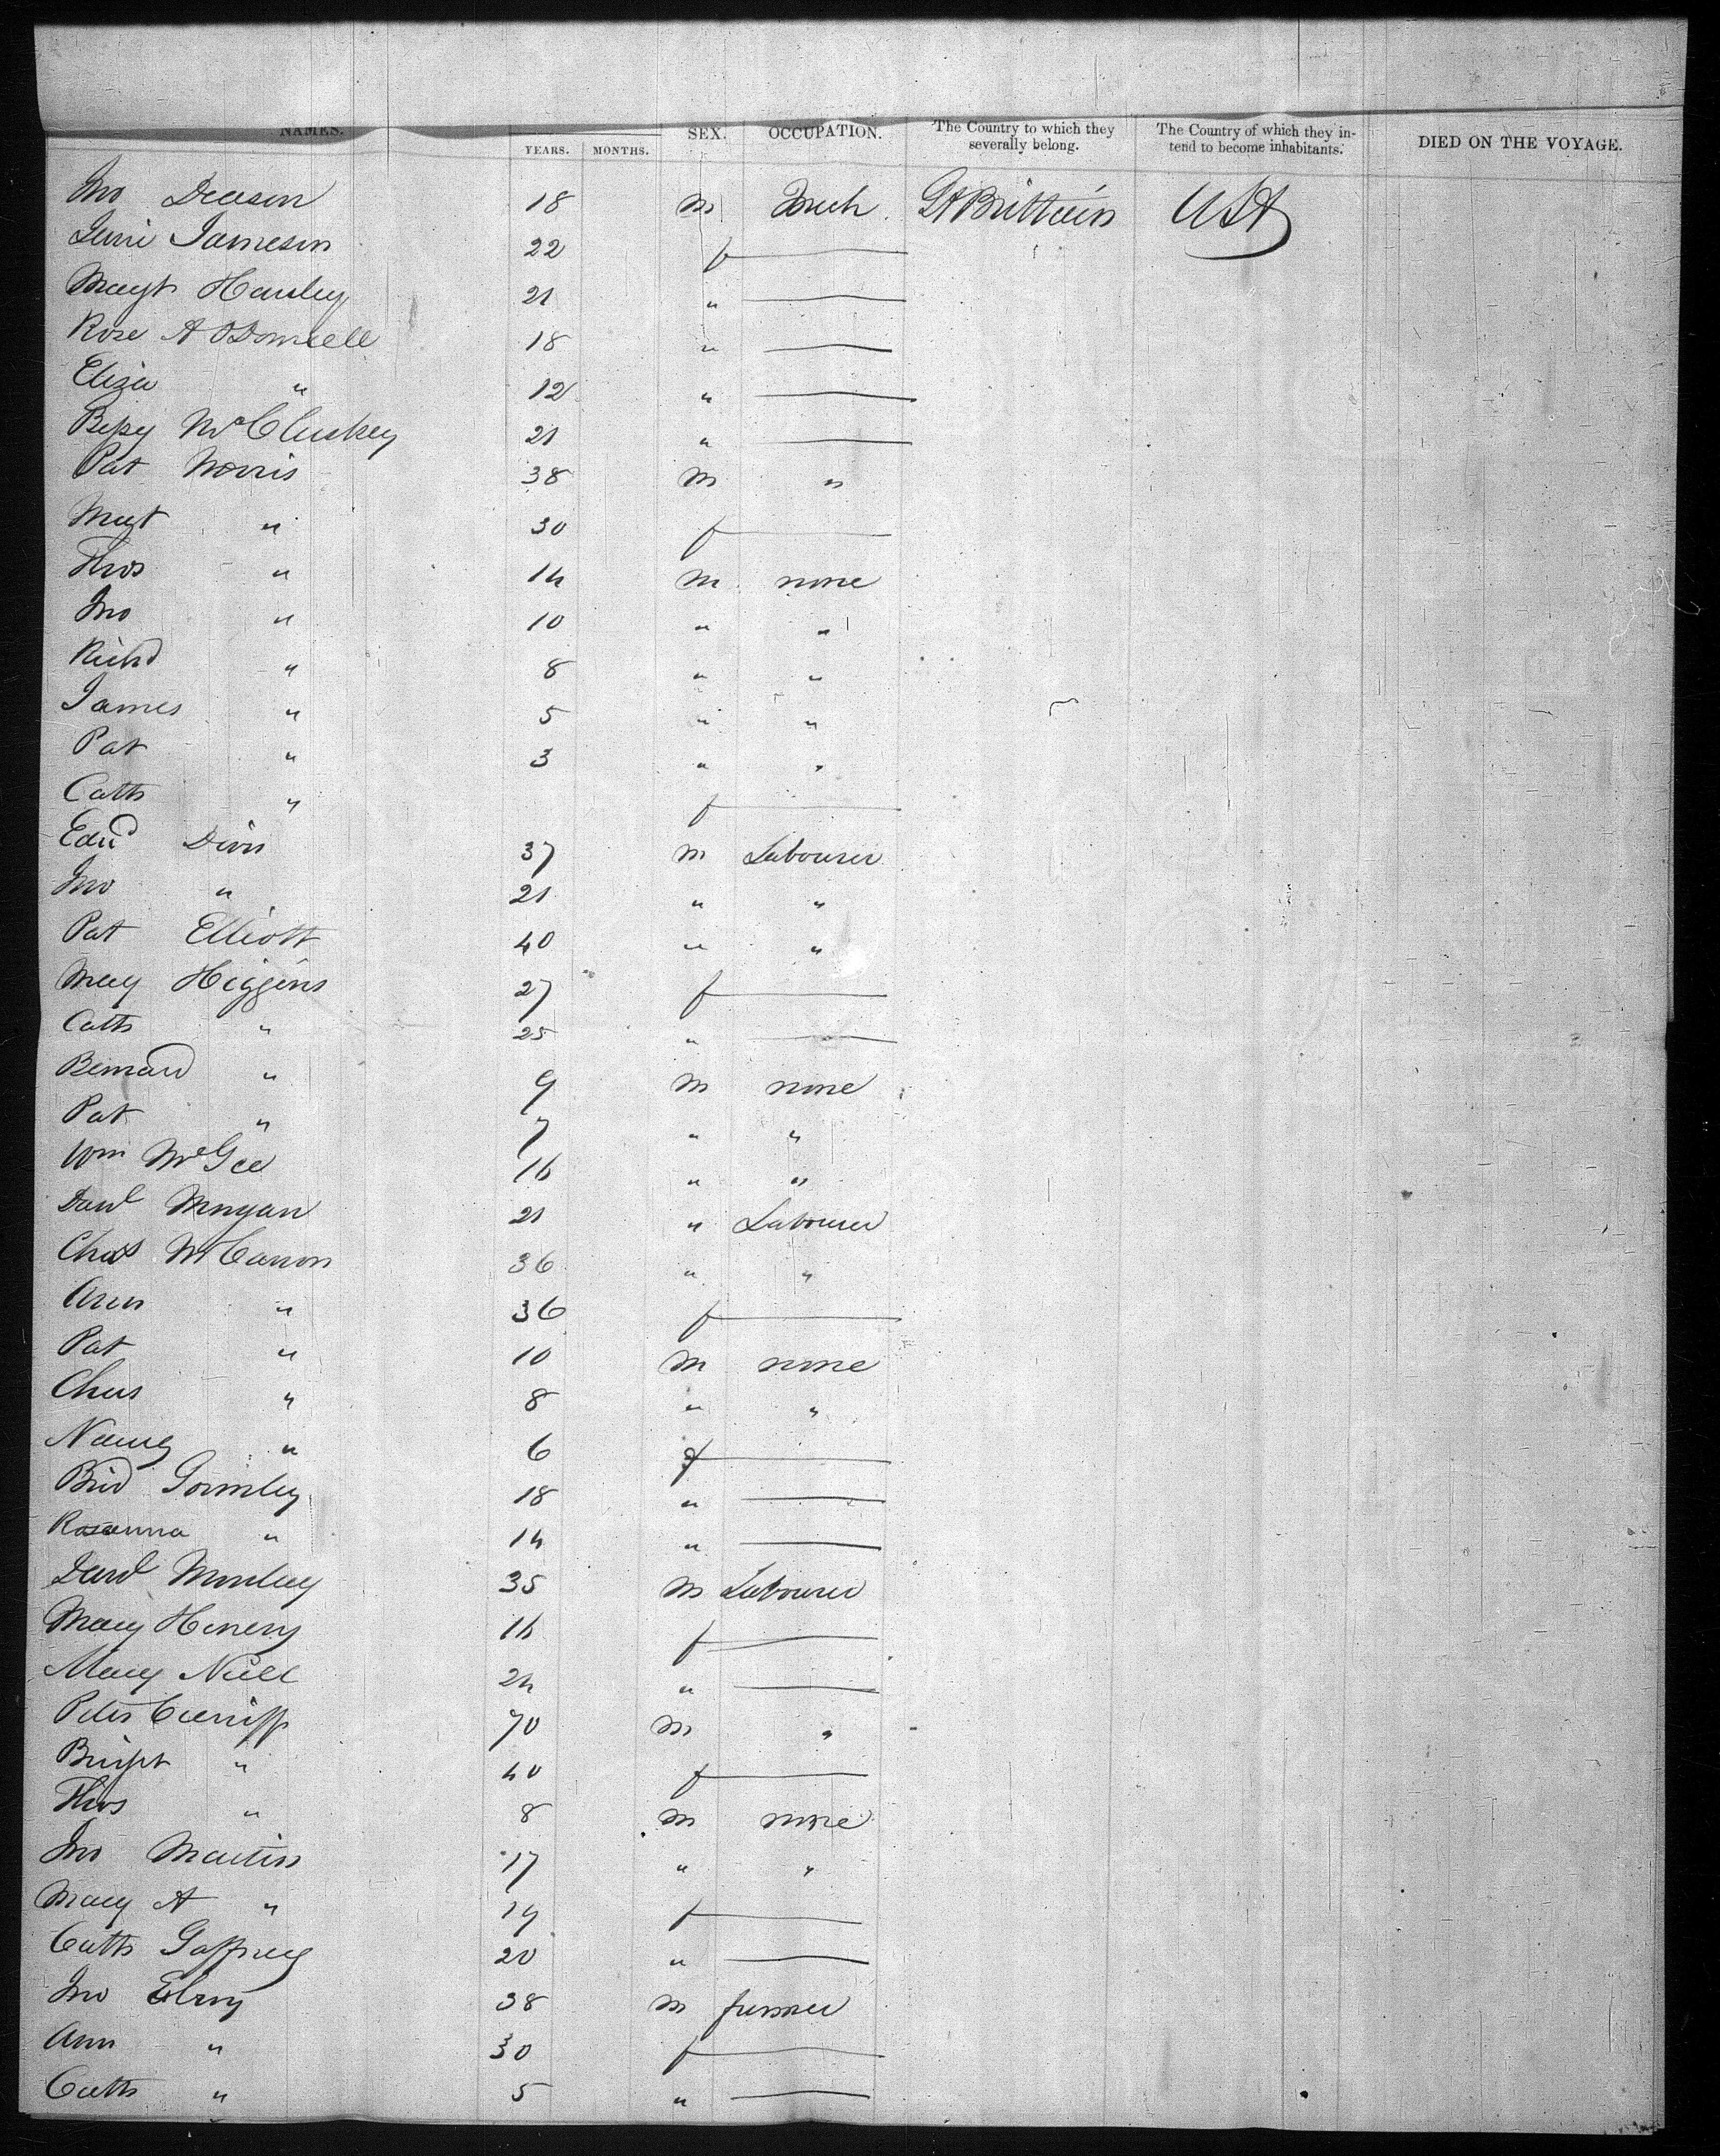 NAMES. YEARS. MONTHS. SEX. OCCUPATION. The Country to which they severally belong. The Country of which they intend to become inhabitants. DIED ON THE VOYAGE.
Jno Deason 18 m Gt Brittain USA
Jameson 22 f
Margt Hanley 21 "
Rose A ODonnell 18 "
Eliza " 12 "
Bessy McCluskey 21 "
Pat Norris 38 m "
Magt " 30 f
Thos " 14 m none
Jno " 10 " "
Richd " 8 " "
James " 5 " "
Pat " 3 " "
Cath " f
Edwd Divin 37 m Labourer
Jno " 21 " "
Pat Elliott 40 " "
Mary Higgins 27 f
Cath " 25 "
Bernard " 9 m none
Pat " 7 " "
Wm McGee 16 " "
Danl 21 " Labourer
Chas McCarron 36 " "
Ann " 36 f
Pat " 10 m none
Chas " 8 " "
Nancy " 6 f
Brid Gormley 18 "
Rosanna " 14 "
Danl 35 m Labourer
Mary Henery 16 f
Mary Niell 24 "
Peter 70 m "
Bridget " 40 f
Thos " 8 m none
Jno Martin 17 " "
Mary A " 19 f
Cath Gaffney 20 "
Jno 38 m farmer
Ann " 30 f
Cath " 5 "